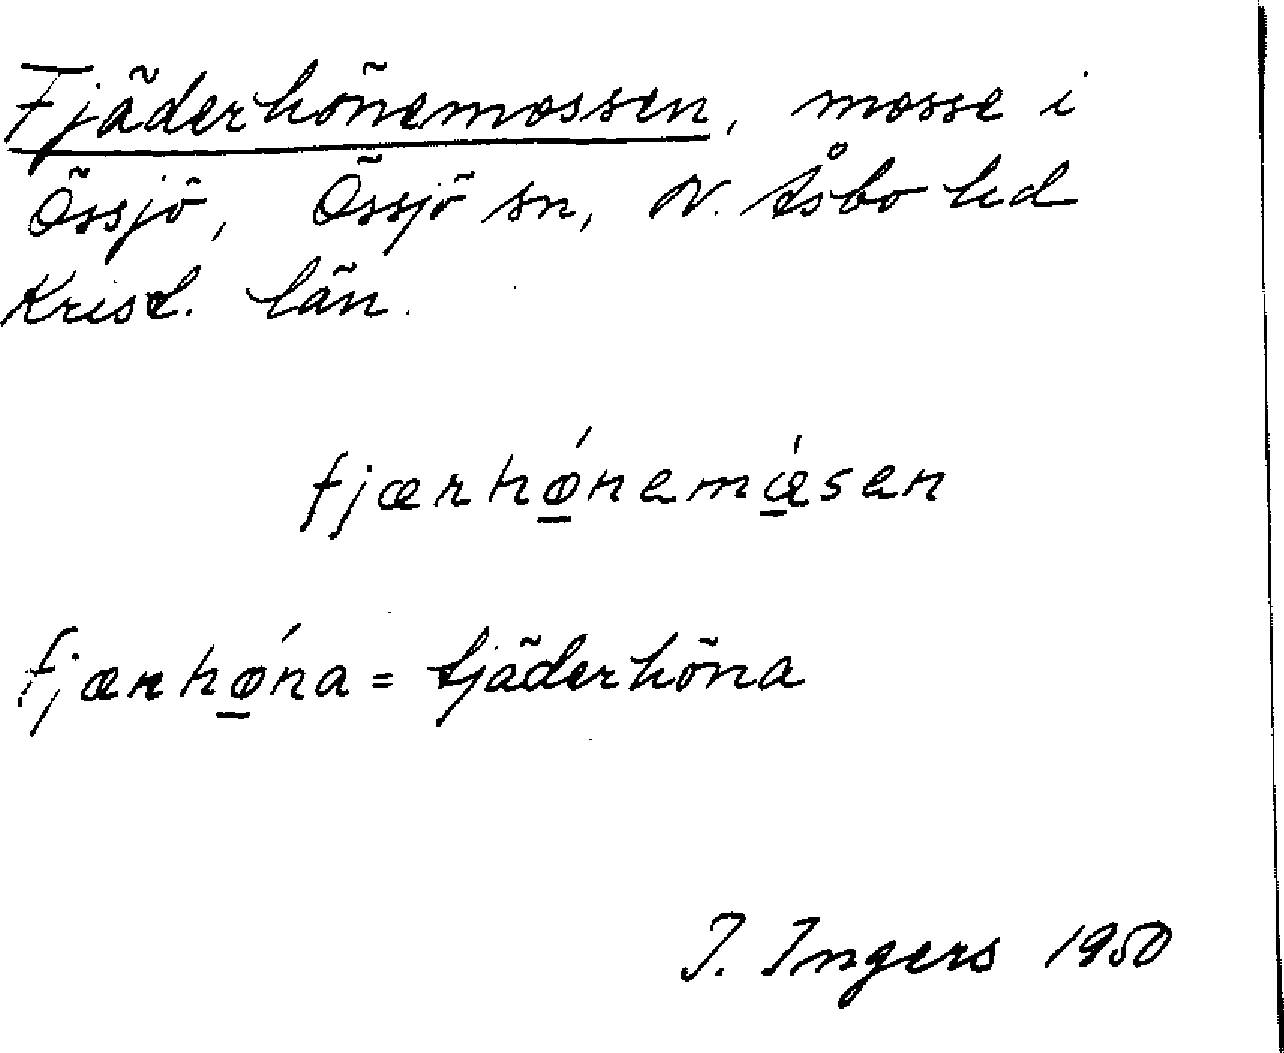 Fjäderhönemossen, mosse i
Össjö, Össjö sn, N. Åsbo hd
Krist. län.
fjærhǿ̲nemœ̲́sen
fjærhǿ̲na = fjäderhöna
I. Ingers 1950